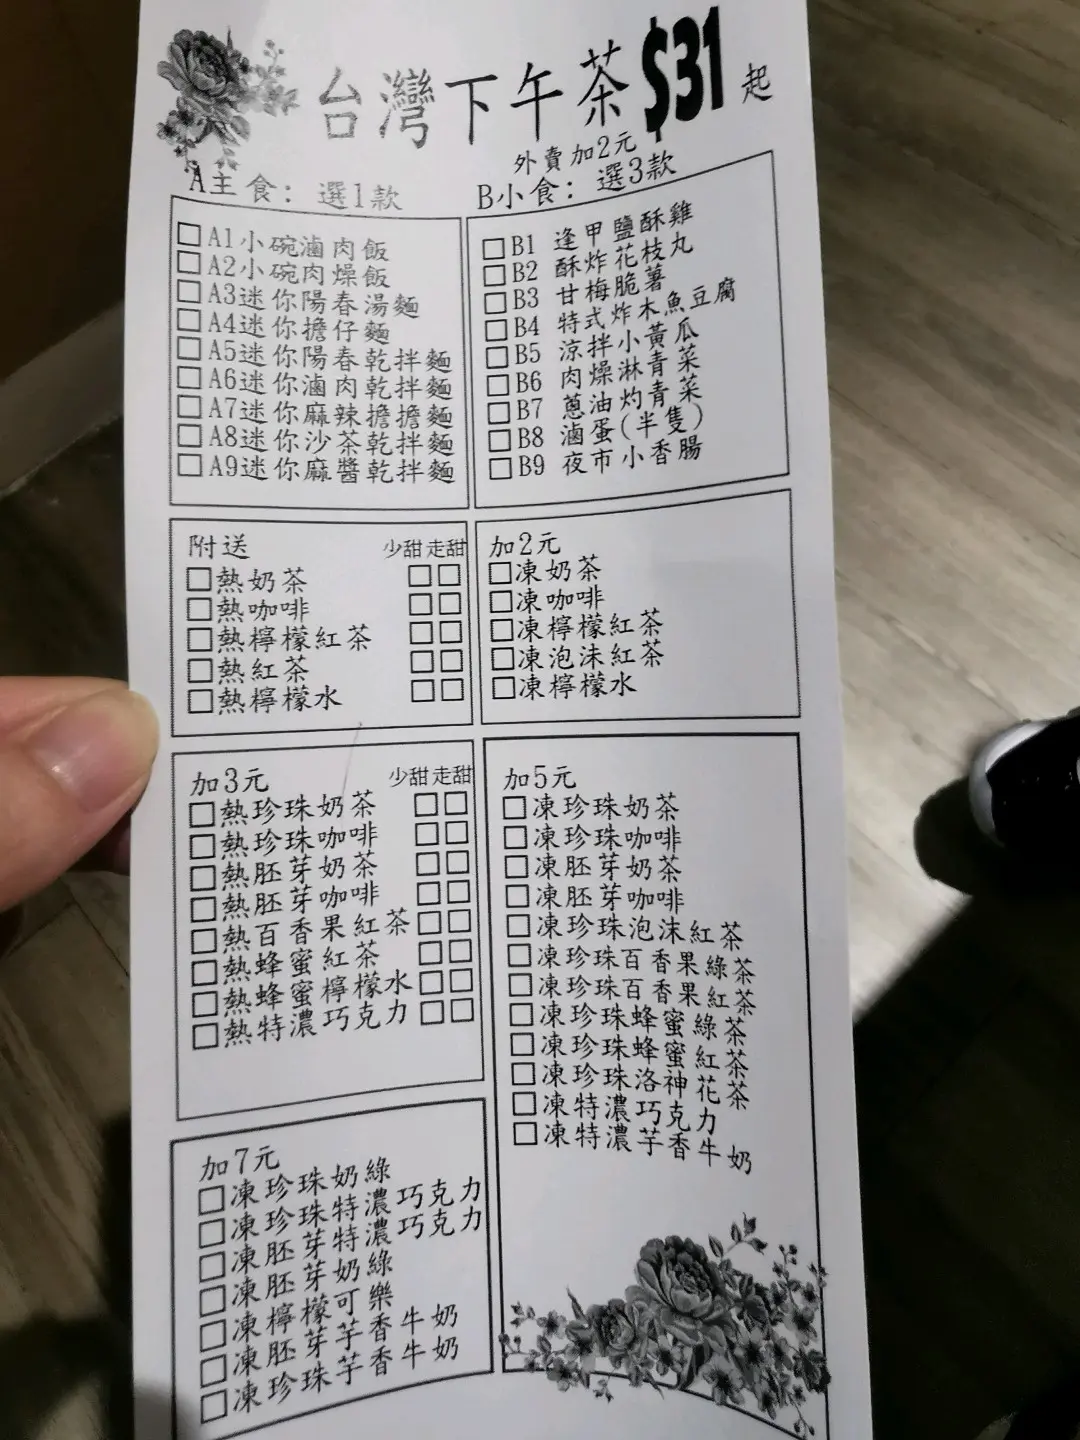 台灣下午茶$31起
外賣加2元
A主食：選1款
A1小碗滷肉飯
A2小碗肉燥飯
A3迷你陽春湯麵
A4迷你擔仔麵
A5迷你陽春乾拌麵
A6迷你滷肉乾拌麵
A7迷你麻辣擔擔麵
A8迷你沙茶乾拌麵
A9迷你麻醬乾拌麵
B小食：選3款
B1 逢甲鹽酥雞
B2 酥炸花枝丸
B3 甘梅脆薯
B4 特式炸木魚豆腐
B5 涼拌小黃瓜
B6 肉燥淋青菜
B7 蔥油灼青菜
B8 滷蛋(半隻)
B9 夜市小香腸
附送 少甜 走甜
熱奶茶
熱咖啡
熱檸檬紅茶
熱紅茶
熱檸檬水
加2元
凍奶茶
凍咖啡
凍檸檬紅茶
凍泡沫紅茶
凍檸檬水
加3元 少甜 走甜
熱珍珠奶茶
熱珍珠咖啡
熱胚芽奶茶
熱胚芽咖啡
熱百香果紅茶
熱蜂蜜紅茶
熱蜂蜜檸檬水
熱特濃巧克力
加5元
凍珍珠奶茶
凍珍珠咖啡
凍胚芽奶茶
凍胚芽咖啡
凍珍珠泡沫紅茶
凍珍珠百香果綠茶
凍珍珠百香果紅茶
凍珍珠蜂蜜綠茶
凍珍珠蜂蜜紅茶
凍珍珠洛神花茶
凍特濃巧克力
凍特濃芋香牛奶
加7元
凍珍珠奶綠
凍珍珠特濃巧克力
凍胚芽特濃巧克力
凍胚芽奶綠
凍檸檬可樂
凍胚芽芋香牛奶
凍珍珠芋香牛奶